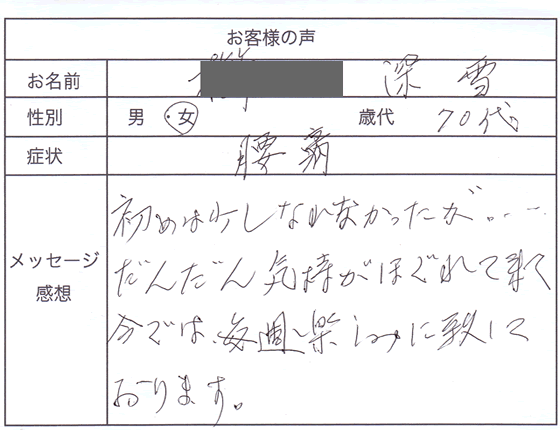 お客様の声
お名前 深雪
性別 男・女 歳代 70代
症状 腰痛
メッセージ
感想
初めは少しなれなかったが。……
だんだん気持がほぐれて来て
今では、毎週楽しみに致して
おります。